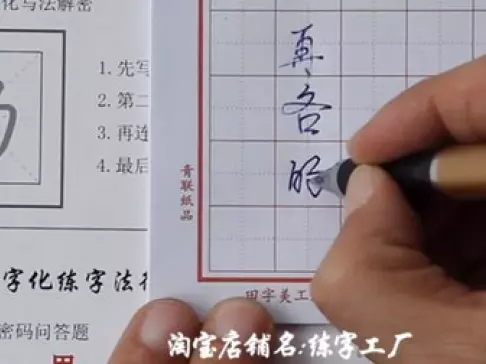 化与法解密
1.先写
2.第二
3.再连
4.最后
字化练字法行
密码问答题
青联纸品
田字美工
淘宝店铺名:练字工厂